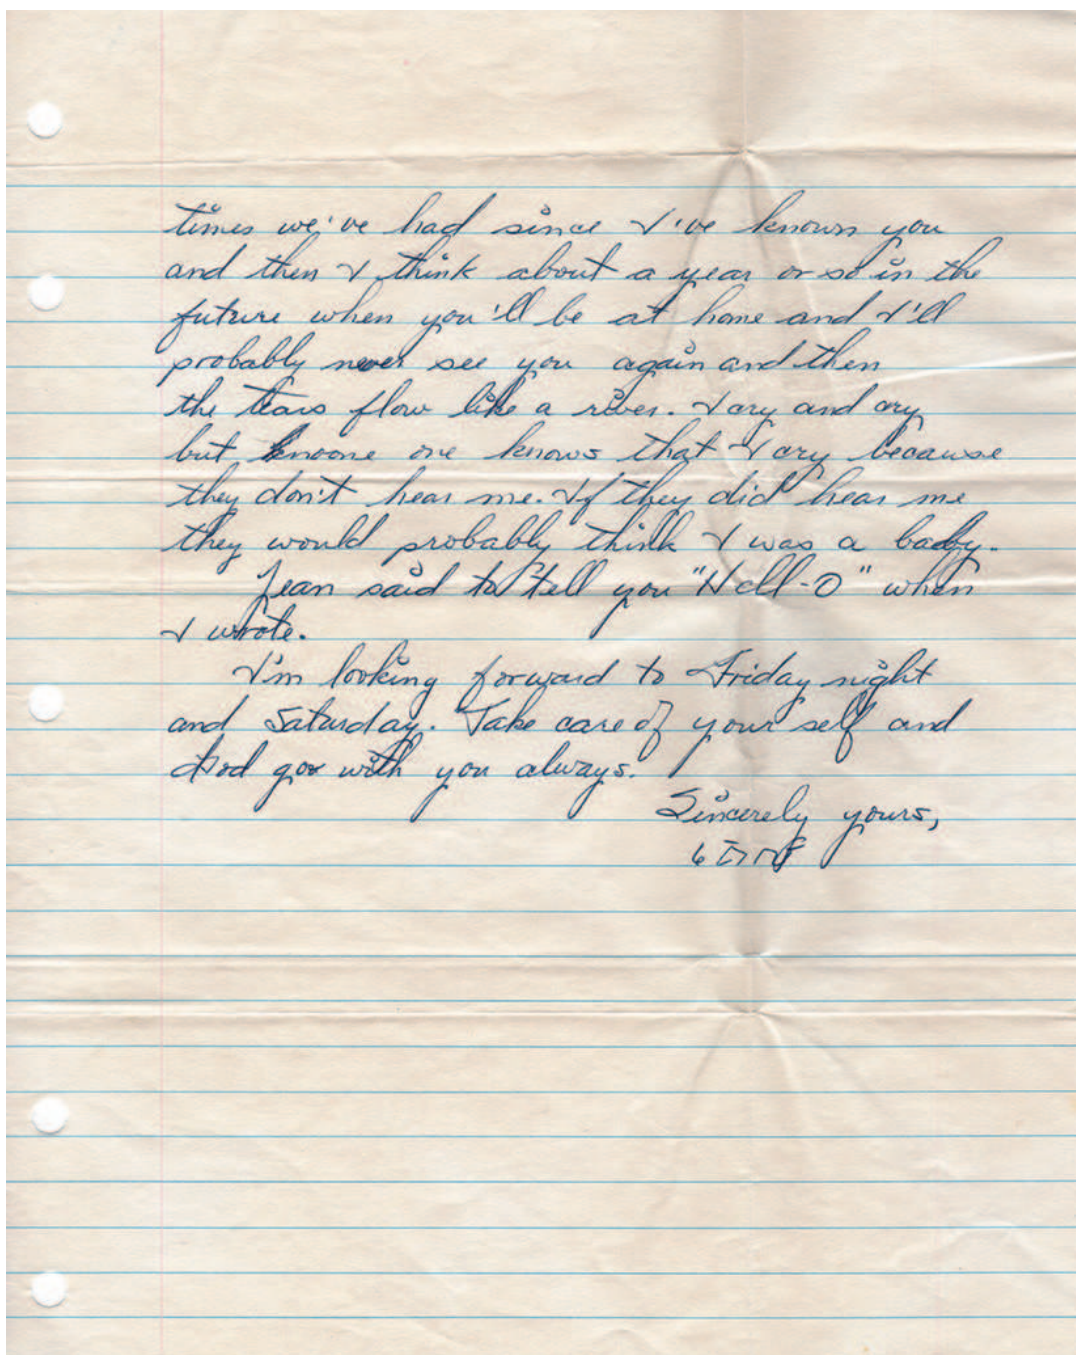 times we've had since I've known you
and then I think about a year or so in the
future when you'll be at home and I'll
probably never see you again and then
the tears flow like a river. I cry and cry
but knoone one knows that I cry because
they don't hear me. If they did hear me
they would probably think I was a baby.
Jean said to tell you "Hell-O" when
I wrote.
I'm looking forward to Friday night
and Saturday. Take care of your self and
God go with you always.
Sincerely yours,